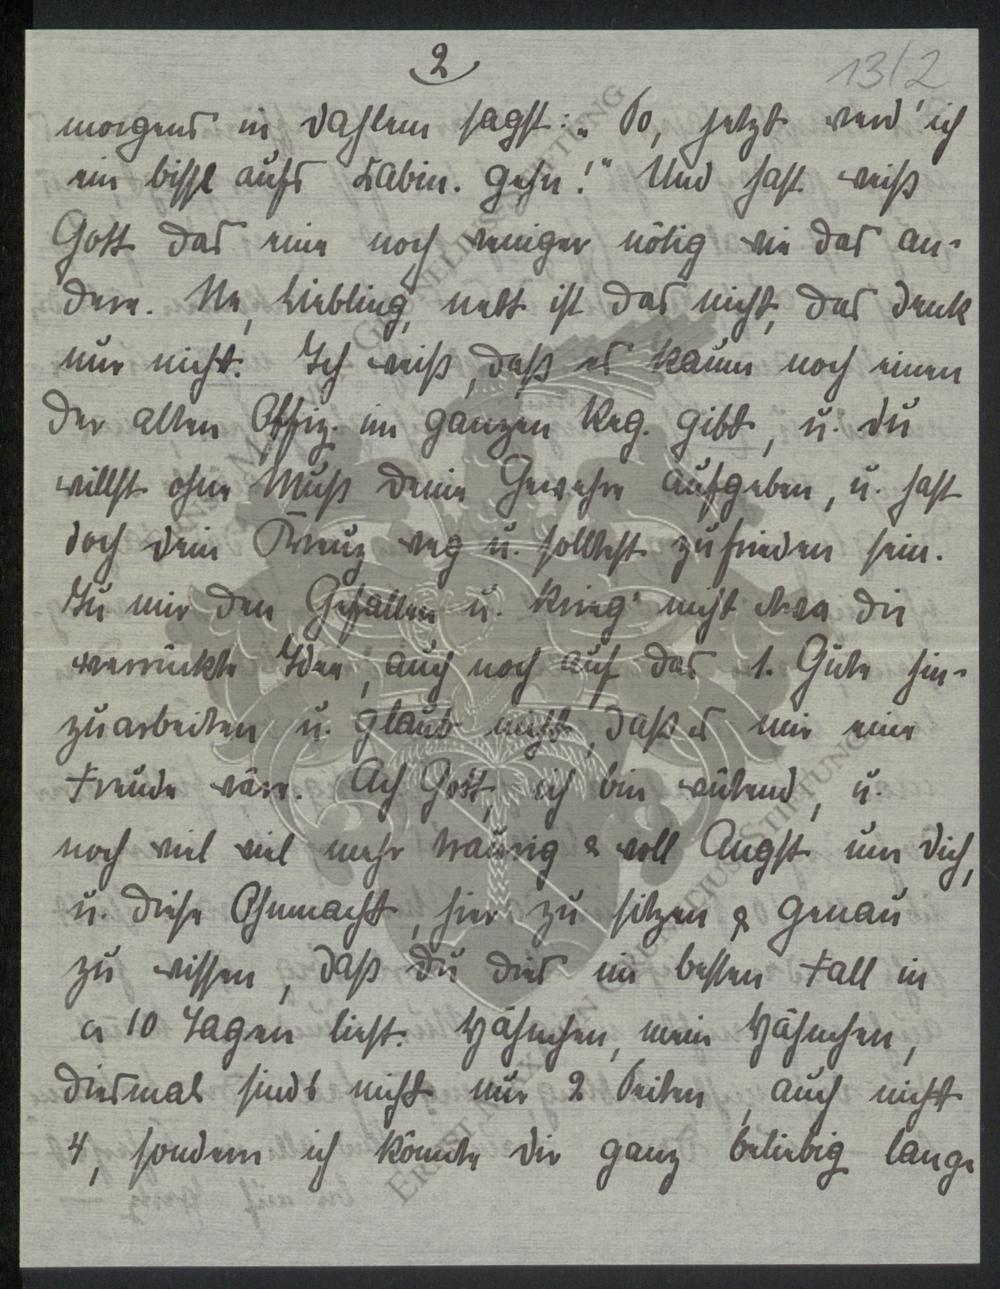 2
13/2
morgens in Dahlem sagst: „So, jetzt werd' ich
ein bissl aufs Kabin. gehn!" Und hast weiß
Gott das eine noch weniger nötig wie das an-
dere. Ne, Liebling, nett ist das nicht, das denk
nur nicht. Ich weiß, daß es kaum noch einen
der alten Offiz. im ganzen Reg. gibt, u. du
willst ohne Muß deine Gewehre aufgeben, u. hast
doch dein Kreuz weg u. solltest zufrieden sein.
Tu mir den Gefallen u. krieg' nicht etwa die
verrückte Idee, auch noch auf das 1. Güte hin-
zuarbeiten u. glaub nicht, daß es mir eine
Freude wäre. Ach Gott, ich bin wütend, u.
noch viel viel mehr traurig & voll Angst um dich,
u. diese Ohnmacht, hier zu sitzen & genau
zu wissen, daß du dies im besten Fall in
a 10 Tagen liest. Hähnchen, mein Hähnchen,
diesmal sind's nicht nur 2 Seiten, auch nicht
4, sondern ich könnte dir ganz beliebig lange
ERNST MAX GRELLIUS STIFTUNG